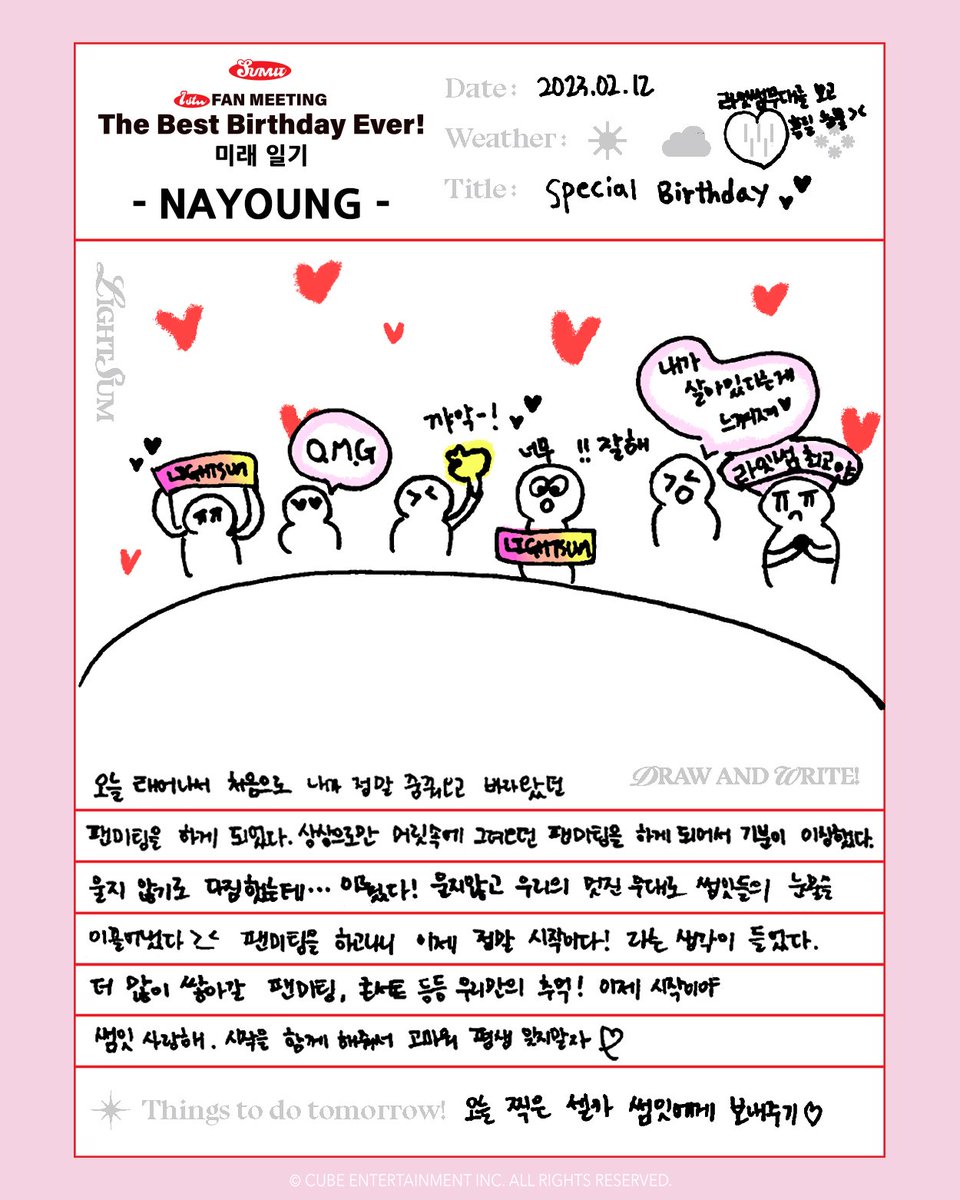 SUMIT
1st FAN MEETING
The Best Birthday Ever!
미래 일기
- NAYOUNG -
Date: 2023.02.12
라잇썸무대를 보고
흘릴 눈물 ><
Weather:
Title: Special Birthday
LIGHTSUM
LIGHTSUM
O.M.G
꺄악-!
너무 !! 잘해
LIGHTSUM
내가
살아있다는게
느껴져
라잇썸 최고야
DRAW AND WRITE!
오늘 태어나서 처음으로 내가 정말 꿈꿔오고 바라왔던
팬미팅을 하게 되었다. 상상으로만 머릿속에 그려오던 팬미팅을 하게 되어서 기분이 이상했다.
울지 않기로 다짐했는데… 이뤘다! 울지않고 우리의 멋진 무대로 썸잇들의 눈물을
이끌어냈다 >< 팬미팅을 하고나니 이제 정말 시작이다! 라는 생각이 들었다.
더 많이 쌓아갈 팬미팅, 콘서트 등등 우리만의 추억! 이제 시작이야
썸잇 사랑해. 시작을 함께 해줘서 고마워 평생 잊지말자
Things to do tomorrow! 오늘 찍은 셀카 썸잇에게 보내주기
© CUBE ENTERTAINMENT INC. ALL RIGHTS RESERVED.